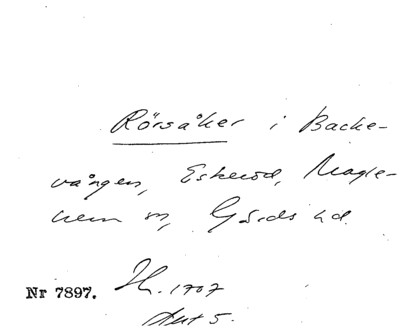 Rörsåker i Backe-
vången, Eskeröd, Magle-
hem sn, Gärds hd.
Nr 7897. 1707
Akt 5.